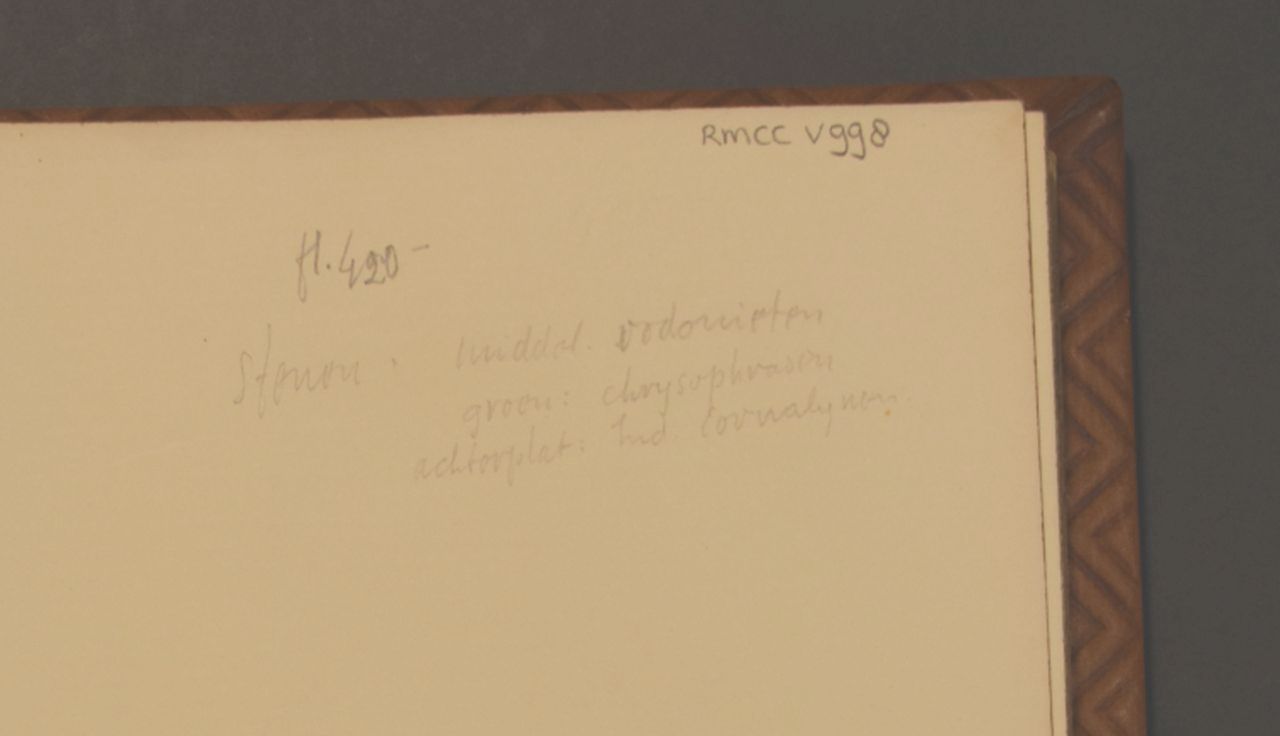 RMCC V998
fl. 420 -
Stenen: middel. rodonieten
groen: chrysophrasen
achterplat: Ind. Cornalynen.